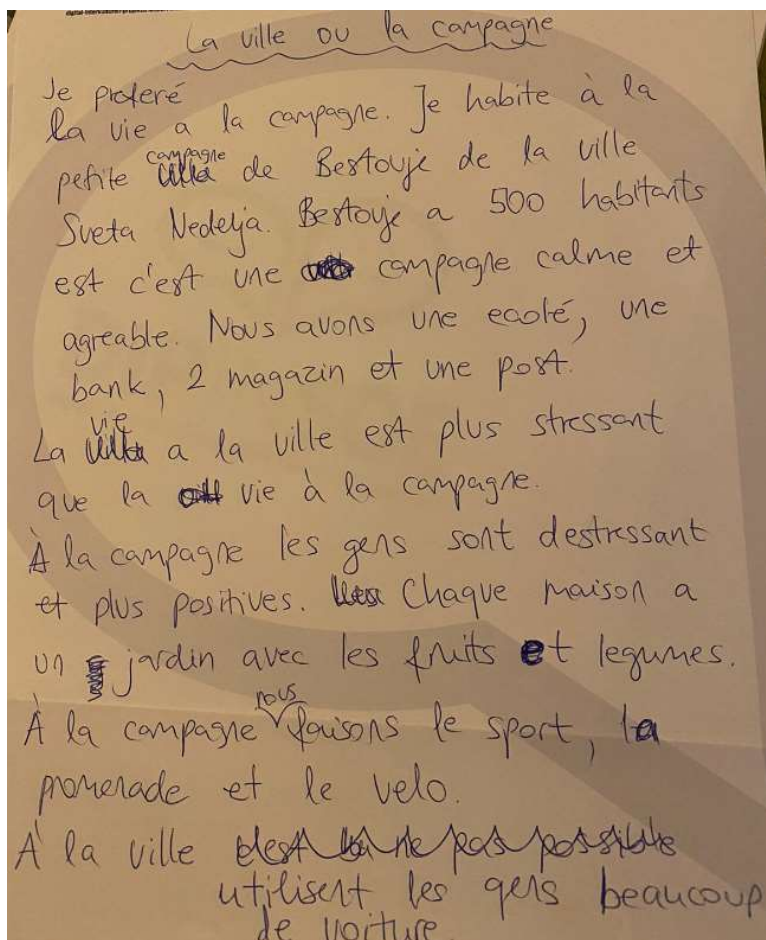 La ville ou la campagne
Je preferé
la vie a la campagne. Je habite à la
petite campagne de Bestovje de la ville
Sveta Nedelja. Bestovje a 500 habitants
est c'est une campagne calme et
agreable. Nous avons une ecolé, une
bank, 2 magazin et une post.
La vie a la ville est plus stressant
que la vie à la campagne.
À la campagne les gens sont destressant
et plus positives. Chaque maison a
un jardin avec les fruits et legumes.
À la campagne nous faisons le sport, la
promenade et le velo.
À la ville
utilisent les gens beaucoup
de voiture